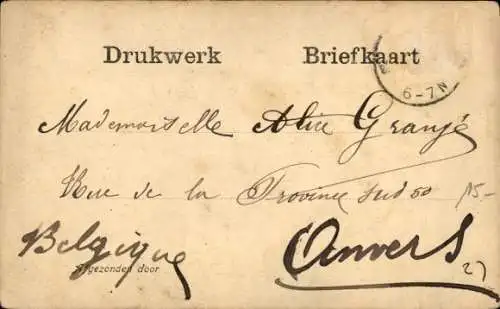 Drukwerk Briefkaart
6-7N
Mademoiselle Alice Granjé
Rue de la Province sud 80
15-
Belgique Anvers
Afgezonden door
27